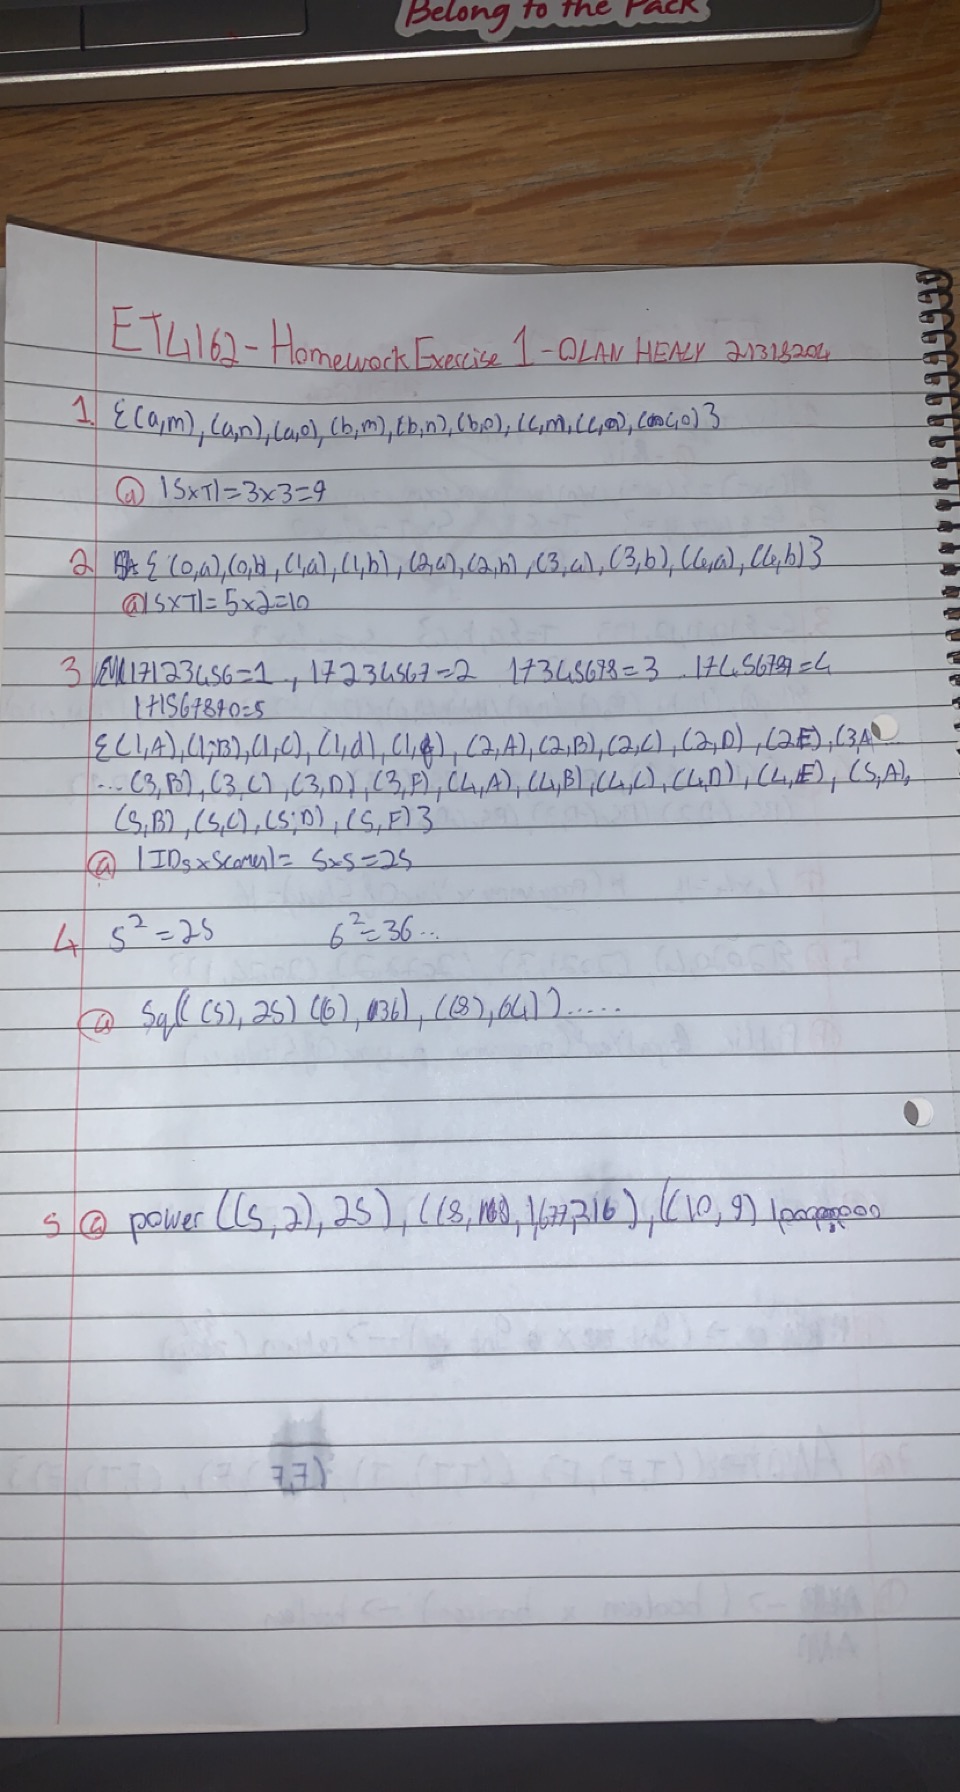 Belong to the Pack
ET4162 - Homework Exercise 1 - OLAN HEALY 21318204
1. {(a,m), (a,n), (a,o), (b,m), (b,n), (b,o), (c,m, (c,n), (c,o)}
(a) |S×T| = 3×3=9
2 {(0,a), (0,b, (1,a), (1,b), (2,a), (2,b), (3,a), (3,b), (4,a), (4,b)}
(a) |S×T|= 5×2=10
3 17123456=1, 17234567=2 17345678=3 17456789=4
171567890=5
{(1,A), (1,B), (1,C), (1,d), (1, (2,A), (2,B), (2,C), (2,D), (2E), (3A
... (3,B), (3,C), (3,D), (3,F), (4,A), (4,B), (4,C), (4,D), (4,E), (5,A),
(5,B), (5,C), (5,D), (5,F)}
(a) |IDs×Scores|= 5×5=25
4 5²=25 6²=36...
(a) Sq(( (5), 25) ((6), 36), ((8), 64)).....
5 (a) power ((5,2), 25), ((8, 1677216), ((10, 9)
7,7)